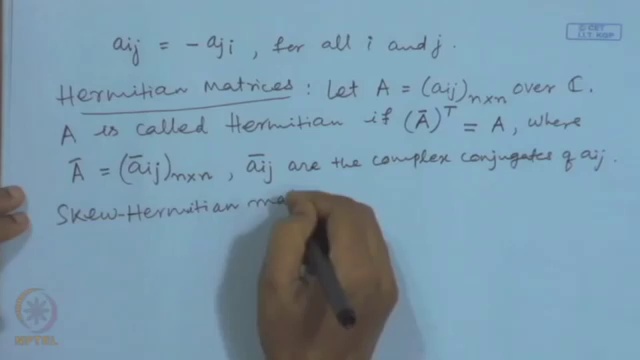 aij = - aji , for all i and j.
Hermitian Matrices : Let A = (aij)n×n over ℂ.
A is called Hermitian if (Ā)ᵀ = A, where
Ā = (āij)n×n , āij are the complex conjugates of aij.
Skew-Hermitian ma
© CET
I.I.T. KGP
NPTEL